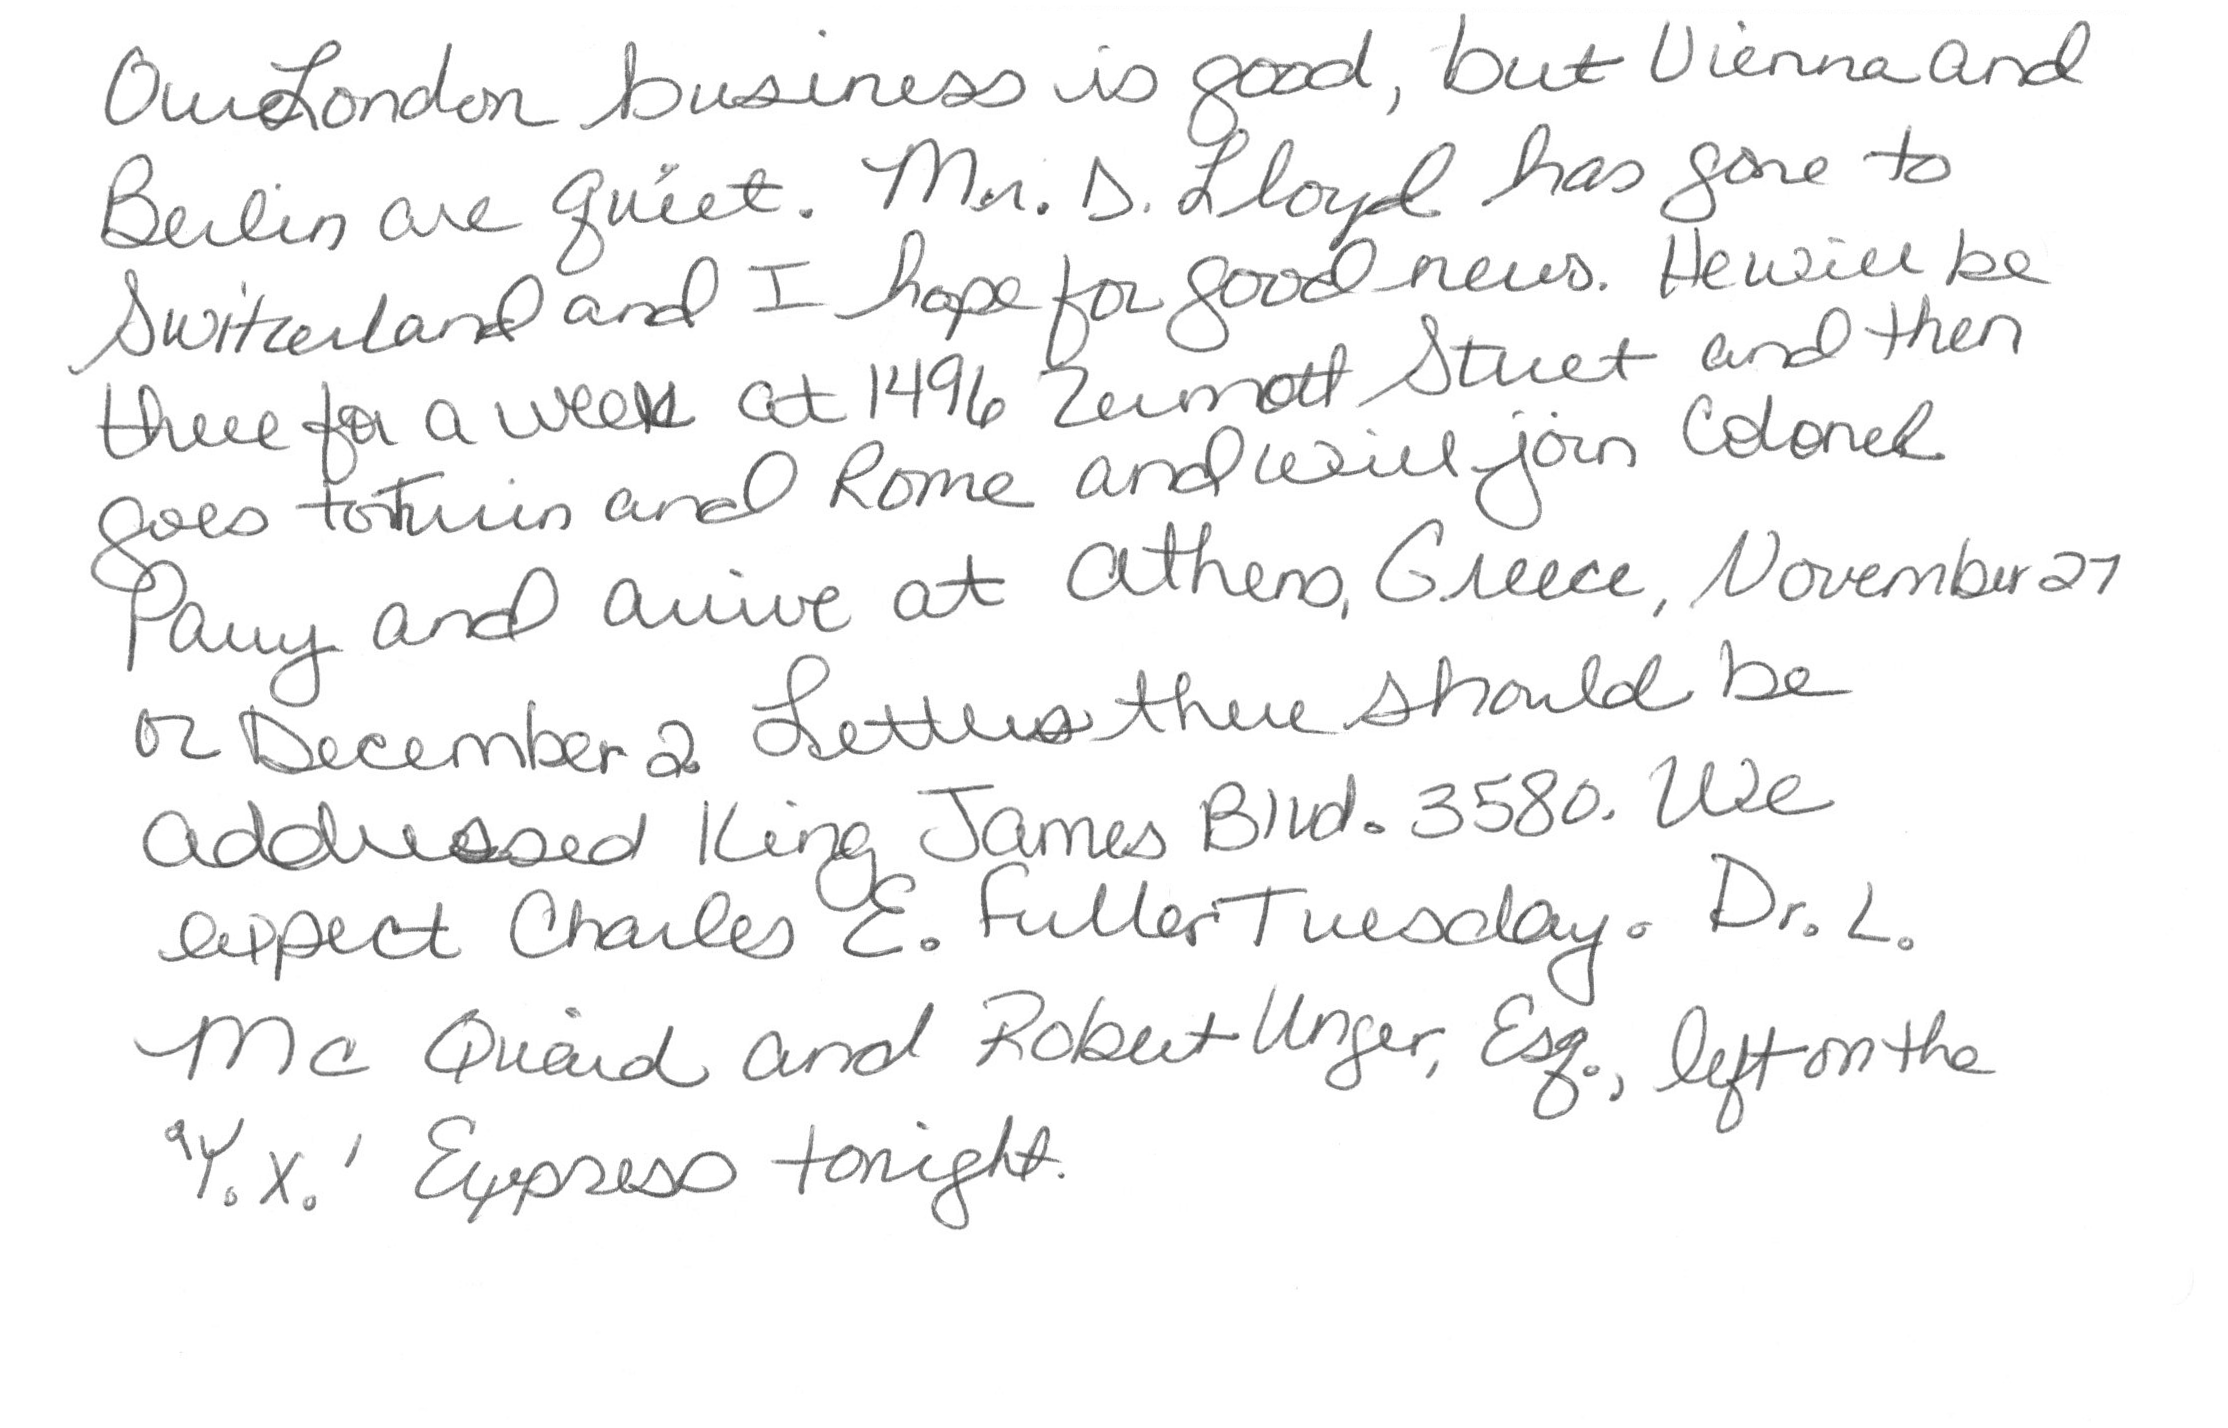 Our London business is good, but Vienna and
Berlin are quiet. Mr. D. Lloyd has gone to
Switzerland and I hope for good news. He will be
there for a week at 1496 Zermott Street and then
goes to Turin and Rome and will join Colonel
Parry and arrive at Athens, Greece, November 27
or December 2. Letters there should be
addressed King James Blvd. 3580. We
expect Charles E. Fuller Tuesday. Dr. L.
Mc Quaid and Robert Unger, Esq., left on the
'Y.X.' Express tonight.